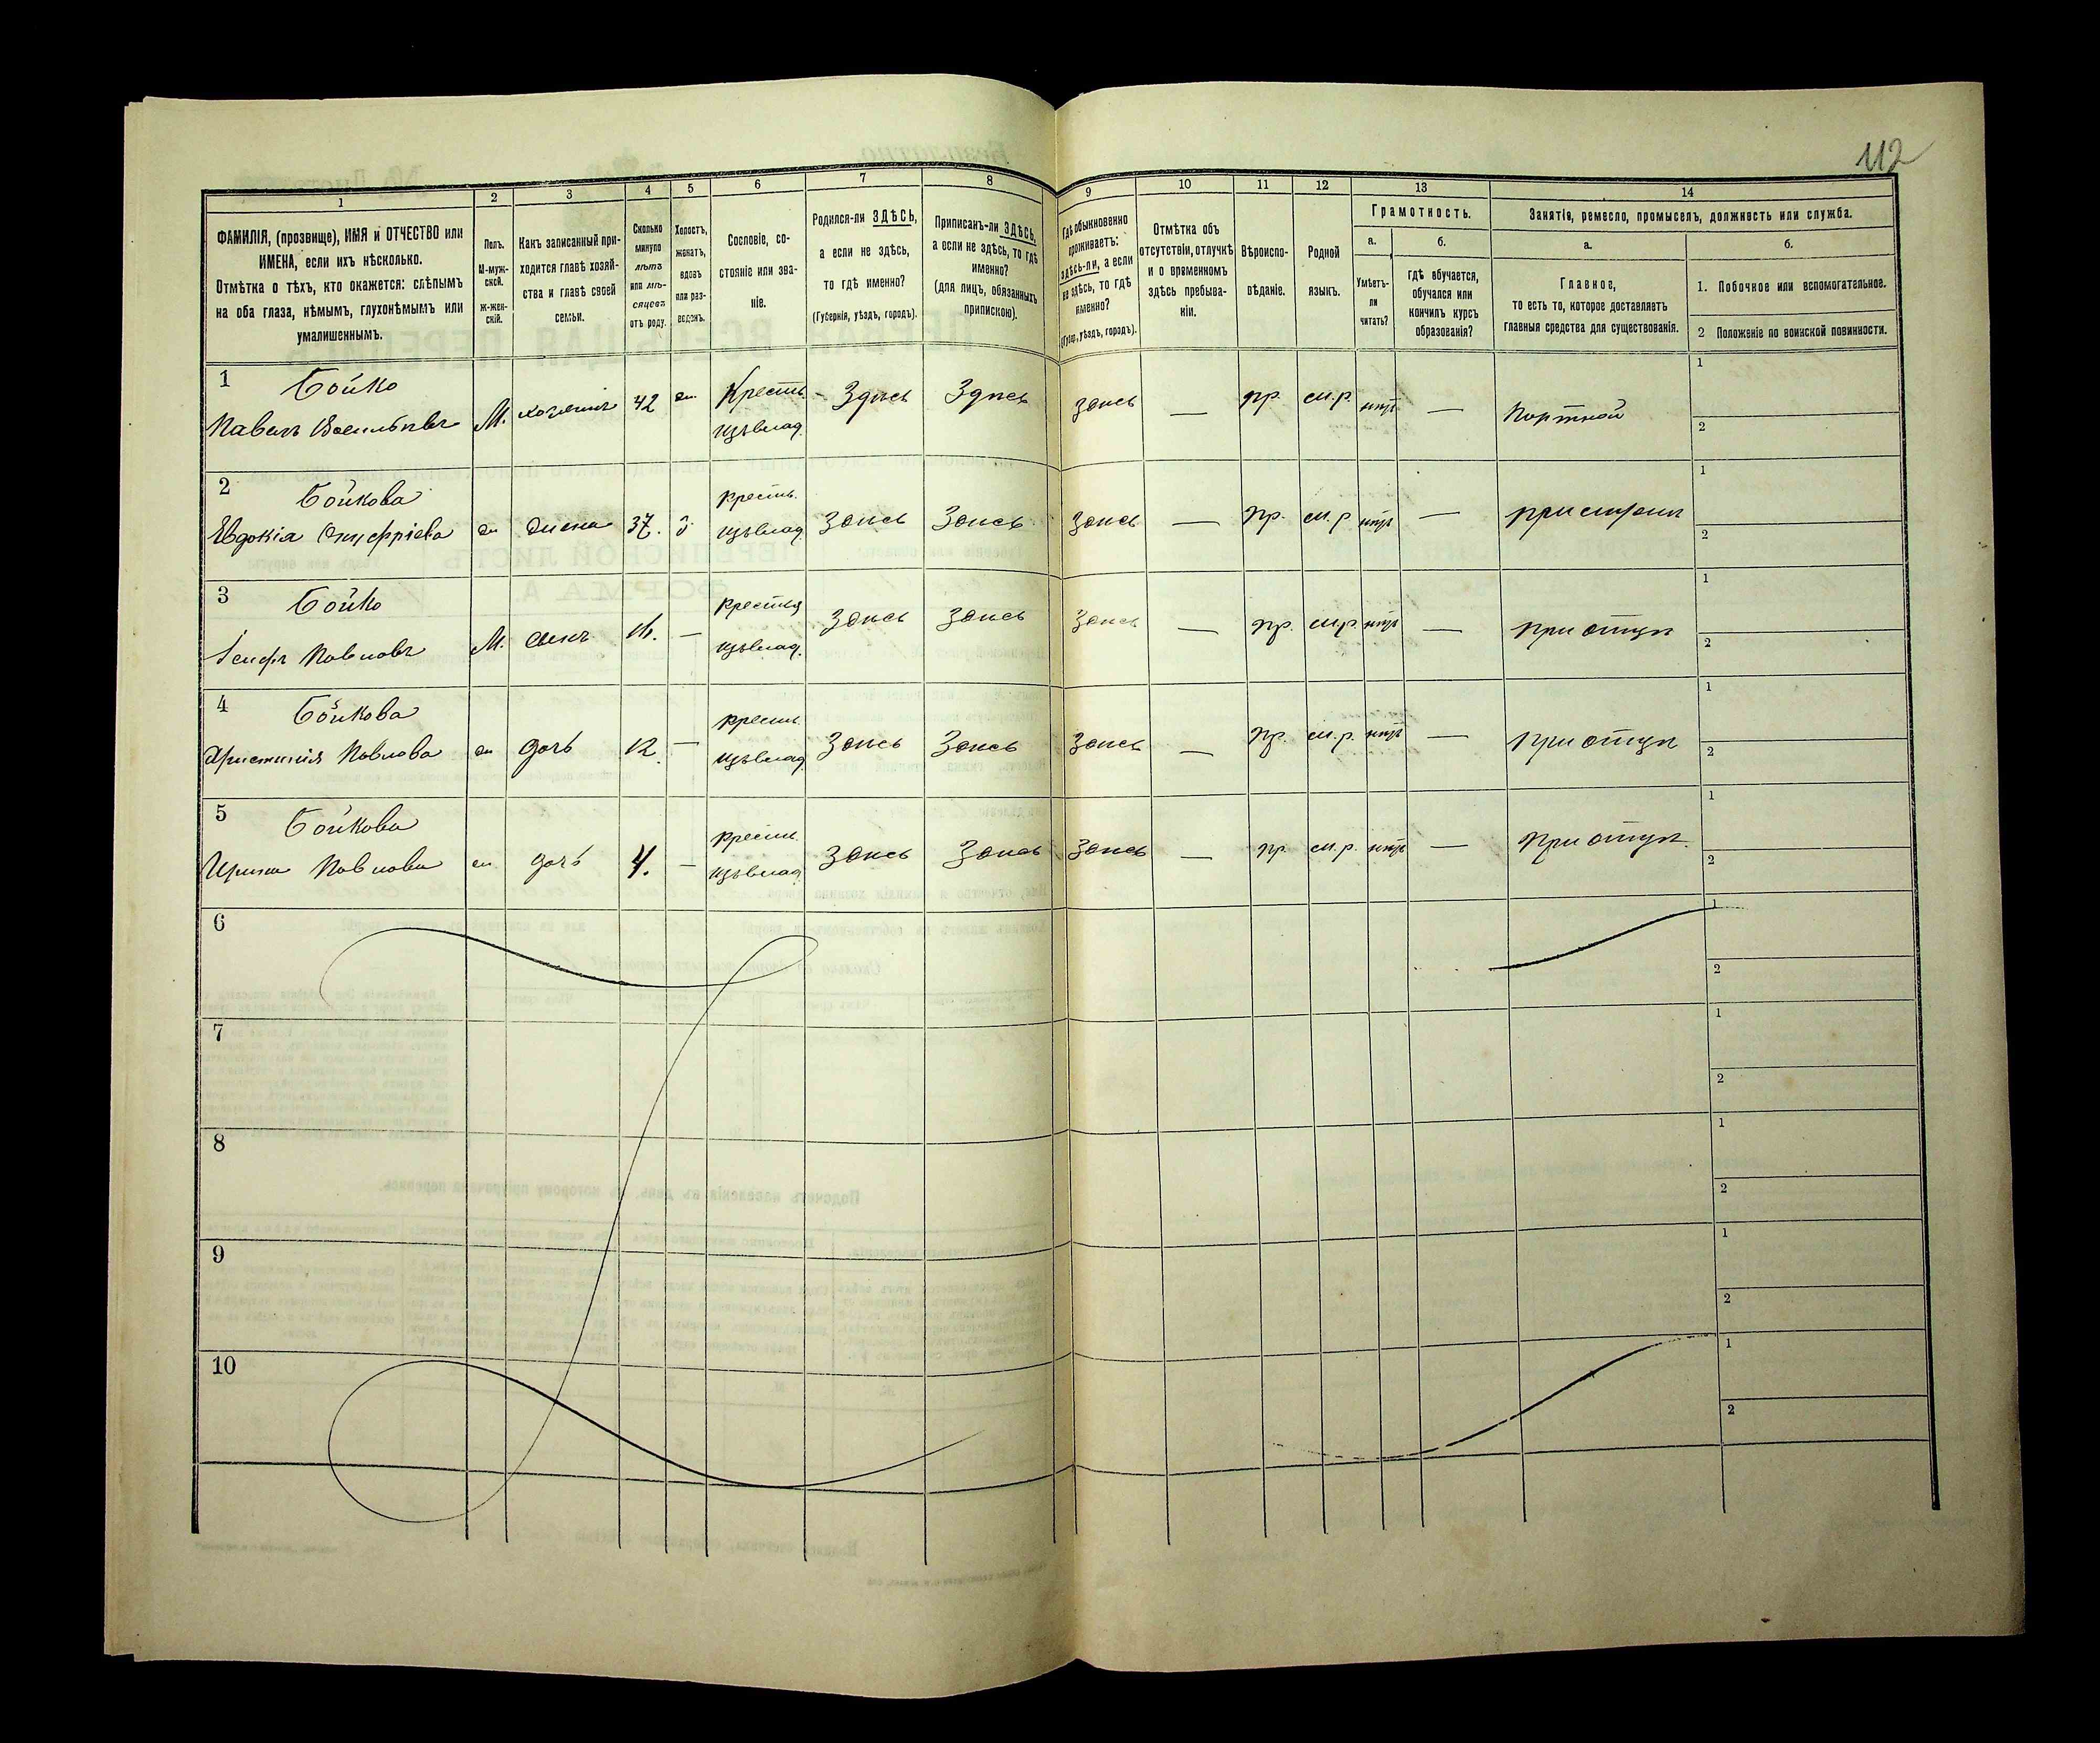 112
1 2 3 4 5 6 7 8 9 10 11 12 13 14
ФАМИЛІЯ, (прозвище), ИМЯ и ОТЧЕСТВО или
ИМЕНА, если ихъ нѣсколько.
Отмѣтка о тѣхъ, кто окажется: слѣпымъ
на оба глаза, нѣмымъ, глухонѣмымъ или
умалишеннымъ.
Полъ.
М-муж-
ской.
Ж-жен-
скій.
Какъ записанный при-
ходится главѣ хозяй-
ства и главѣ своей
семьи.
Сколько
минуло
лѣтъ
или мѣ-
сяцевъ
отъ роду.
Холостъ,
женатъ,
вдовъ
или раз-
веденъ.
Сословіе, со-
стояніе или зва-
ніе.
Родился-ли ЗДѢСЬ,
а если не здѣсь,
то гдѣ именно?
(Губернія, уѣздъ, городъ).
Приписанъ-ли ЗДѢСЬ,
а если не здѣсь, то гдѣ
именно?
(для лицъ, обязанныхъ
припискою).
Гдѣ обыкновенно
проживаетъ:
здѣсь-ли, а если
не здѣсь, то гдѣ
именно?
(Губер., уѣздъ, городъ).
Отмѣтка объ
отсутствіи, отлучкѣ
и о временномъ
здѣсь пребыва-
ніи.
Вѣроиспо-
вѣданіе.
Родной
языкъ.
Грамотность.
а.
Умѣетъ-
ли
читать?
б.
гдѣ обучается,
обучался или
кончилъ курсъ
образованія?
Занятія, ремесло, промыселъ, должность или служба.
а.
Главное,
то есть то, которое доставляетъ
главныя средства для существованія.
б.
1. Побочное или вспомогательное.
2 Положеніе по воинской повинности.
1 Бойко
Павелъ Васильевъ М. хозяинъ 42 ж. Крестьян. изъ влад. Здѣсь Здѣсь здѣсь — пр. м.р. нѣтъ — Портной 1 2
2 Бойкова
Евдокія Онуфріева ж жена 37. з. крестьян. изъ влад. Здѣсь Здѣсь здѣсь — пр. м.р нѣтъ — при мужѣ 1 2
3 Бойко
Іосифъ Павловъ М. сынъ — крестья изъ влад. Здѣсь здѣсь Здѣсь — пр. м.р. нѣтъ — при отцѣ 1 2
4 Бойкова
Христинія Павлова ж дочь 12. — крестьян. изъ влад. Здѣсь Здѣсь Здѣсь — пр. м.р. нѣтъ — при отцѣ 1 2
5 Бойкова
Ирина Павлова ж дочь 4. — крестьян. изъ влад. Здѣсь Здѣсь Здѣсь — пр м.р. нѣтъ — При отцѣ. 1 2
6 1 2
7 1 2
8 1 2
9 1 2
10 1 2